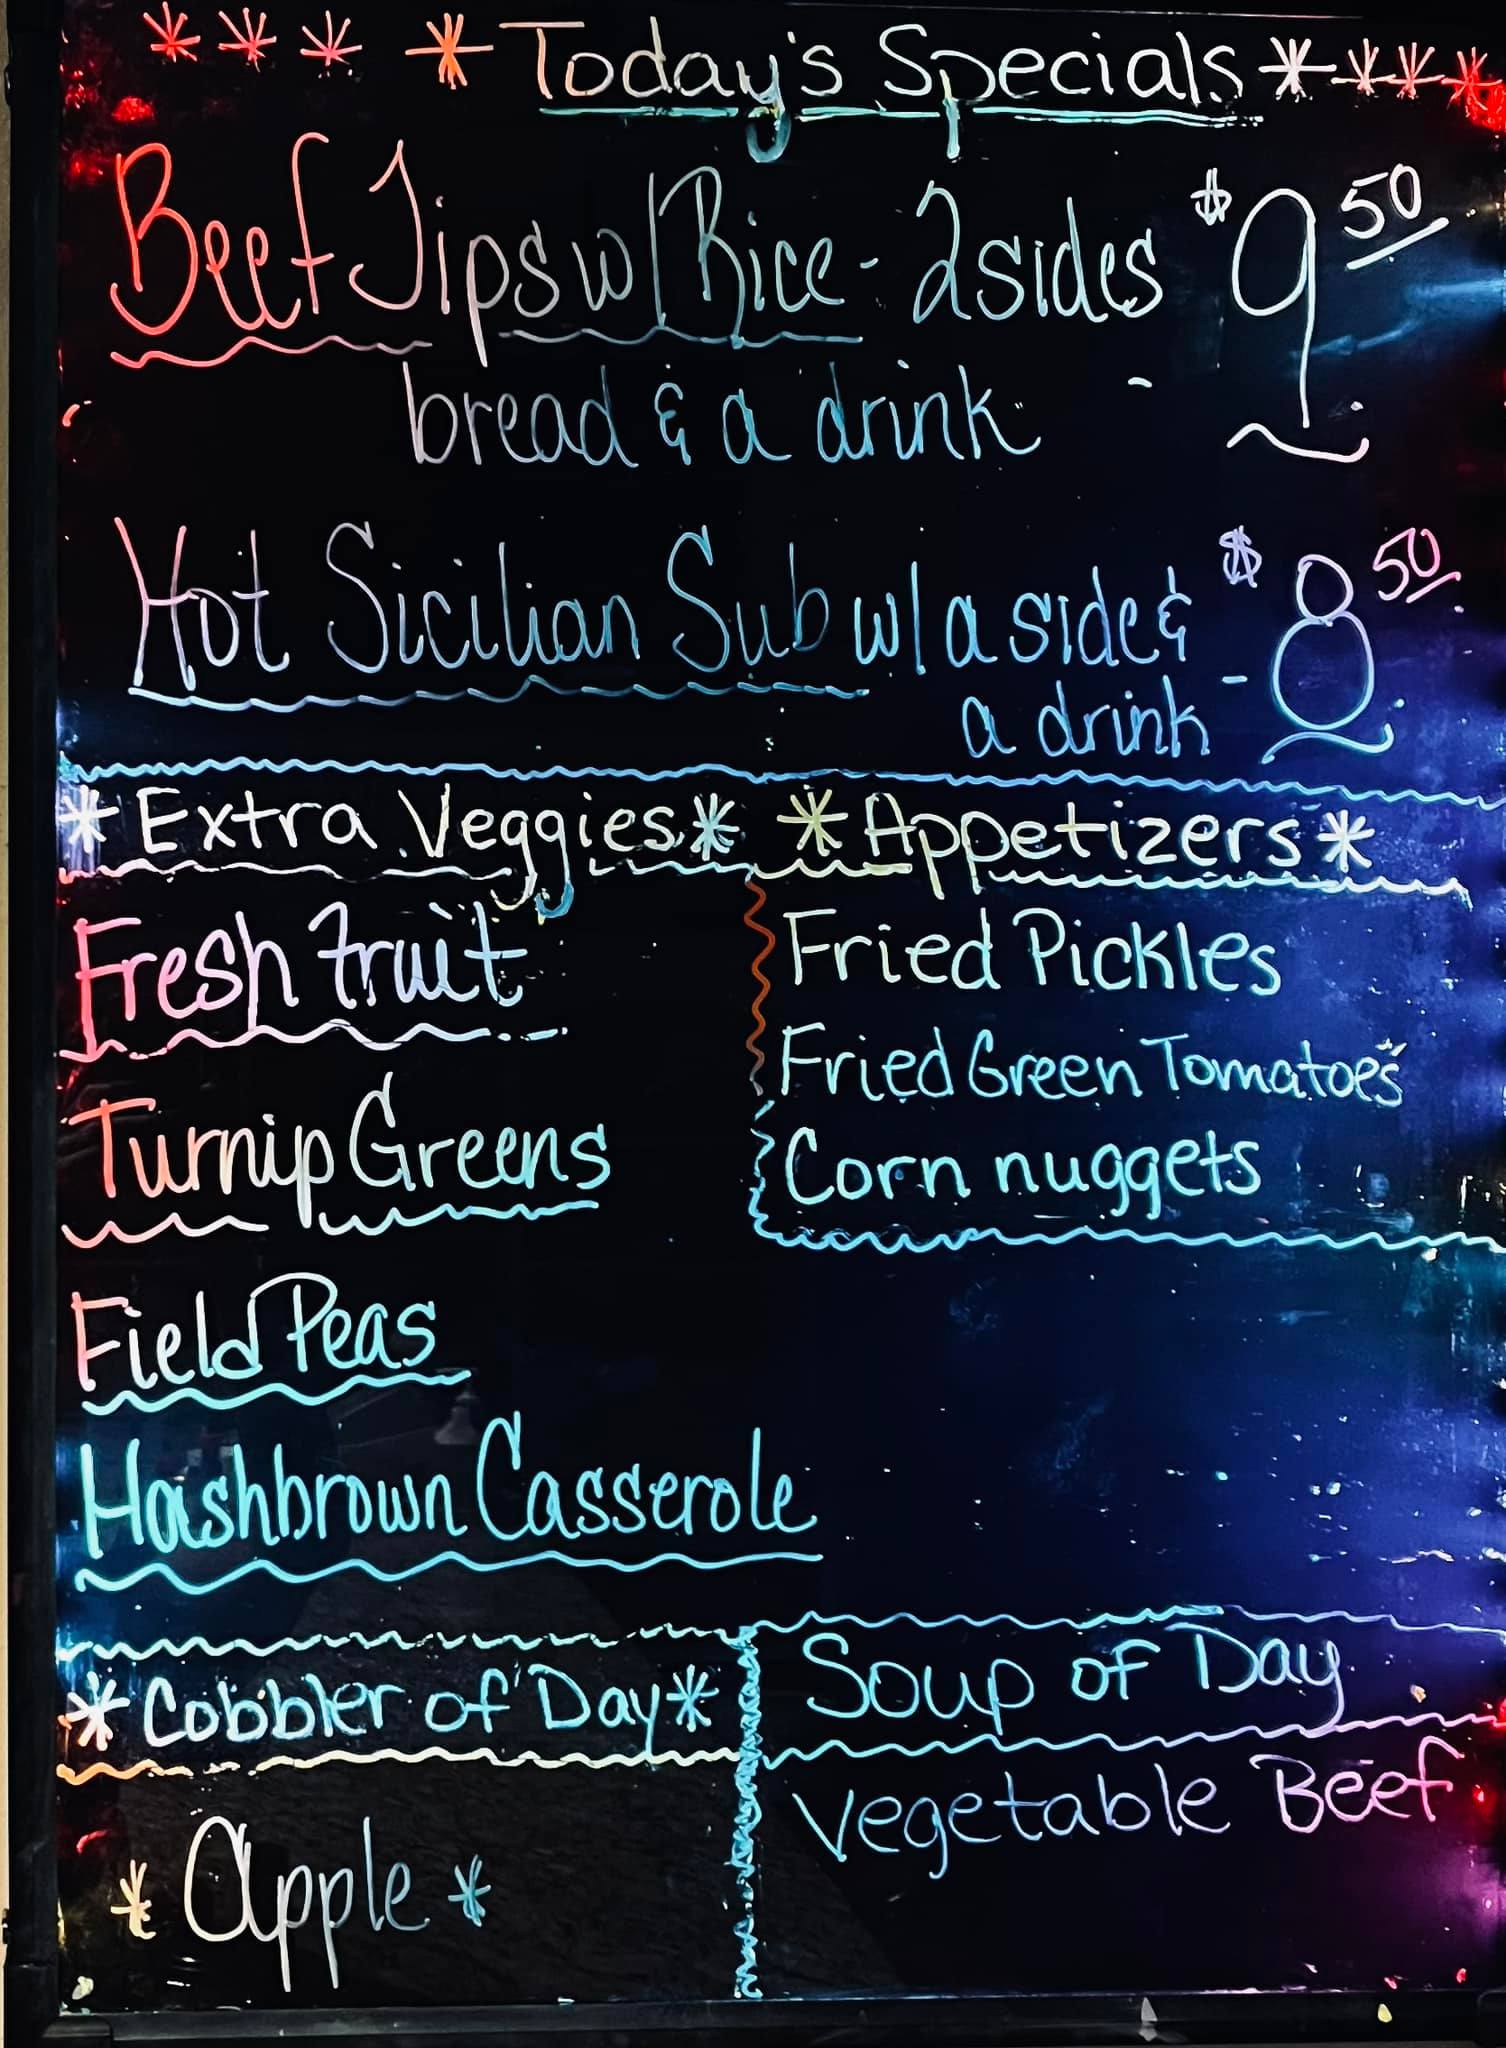 * * * * Today's Specials * * * *
Beef Tips w/ Rice - 2 sides $9.50
bread & a drink -
Hot Sicilian Sub w/ a side & $8.50
a drink -
* Extra Veggies *
Fresh fruit
Turnip Greens
Field Peas
Hashbrown Casserole
* Appetizers *
Fried Pickles
Fried Green Tomatoes
Corn nuggets
* Cobbler of Day *
* Apple *
Soup of Day
Vegetable Beef